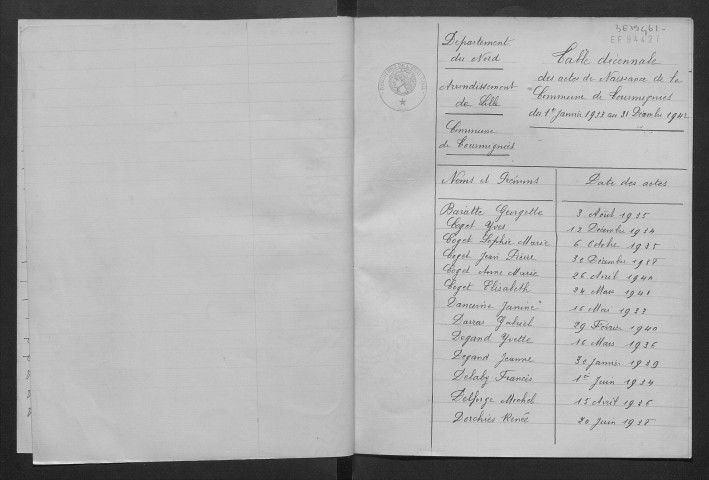 3E19461
Département
du Nord
Arrondissement
de Lille
Commune
de Tourmignies
Table décennale
des actes de Naissance de la
Commune de Tourmignies
du 1er Janvier 1933 au 31 Décembre 1942
Noms et Prénoms Date des actes
Baratte Georgette 3 Août 1935
Coget Yves 12 Décembre 1934
Coget Sophie Marie 6 Octobre 1935
Coget Jean Pierre 30 Décembre 1938
Coget Anne Marie 26 Avril 1940
Coget Elisabeth 24 Mars 1941
Dancoine Janine 15 Mars 1933
Darras Gabriel 29 Février 1940
Degand Yvette 16 Mars 1936
Degand Jeanne 30 Janvier 1939
Delaby Francis 1er Juin 1934
Delforge Michel 15 Avril 1936
Derchies Renée 20 Juin 1938